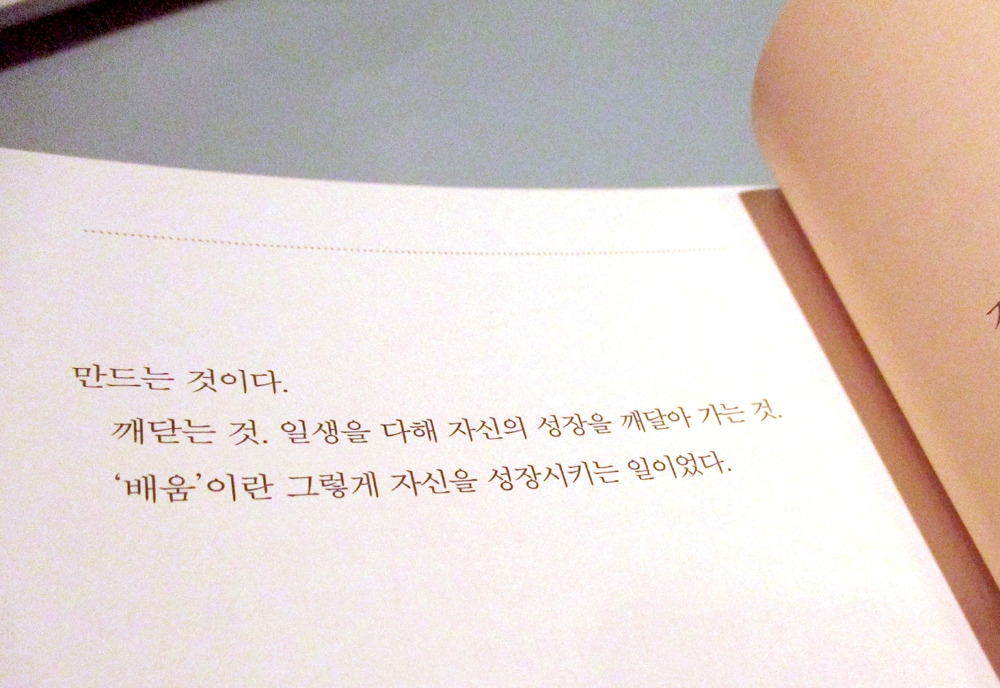 만드는 것이다.
깨닫는 것. 일생을 다해 자신의 성장을 깨달아 가는 것.
‘배움’이란 그렇게 자신을 성장시키는 일이었다.